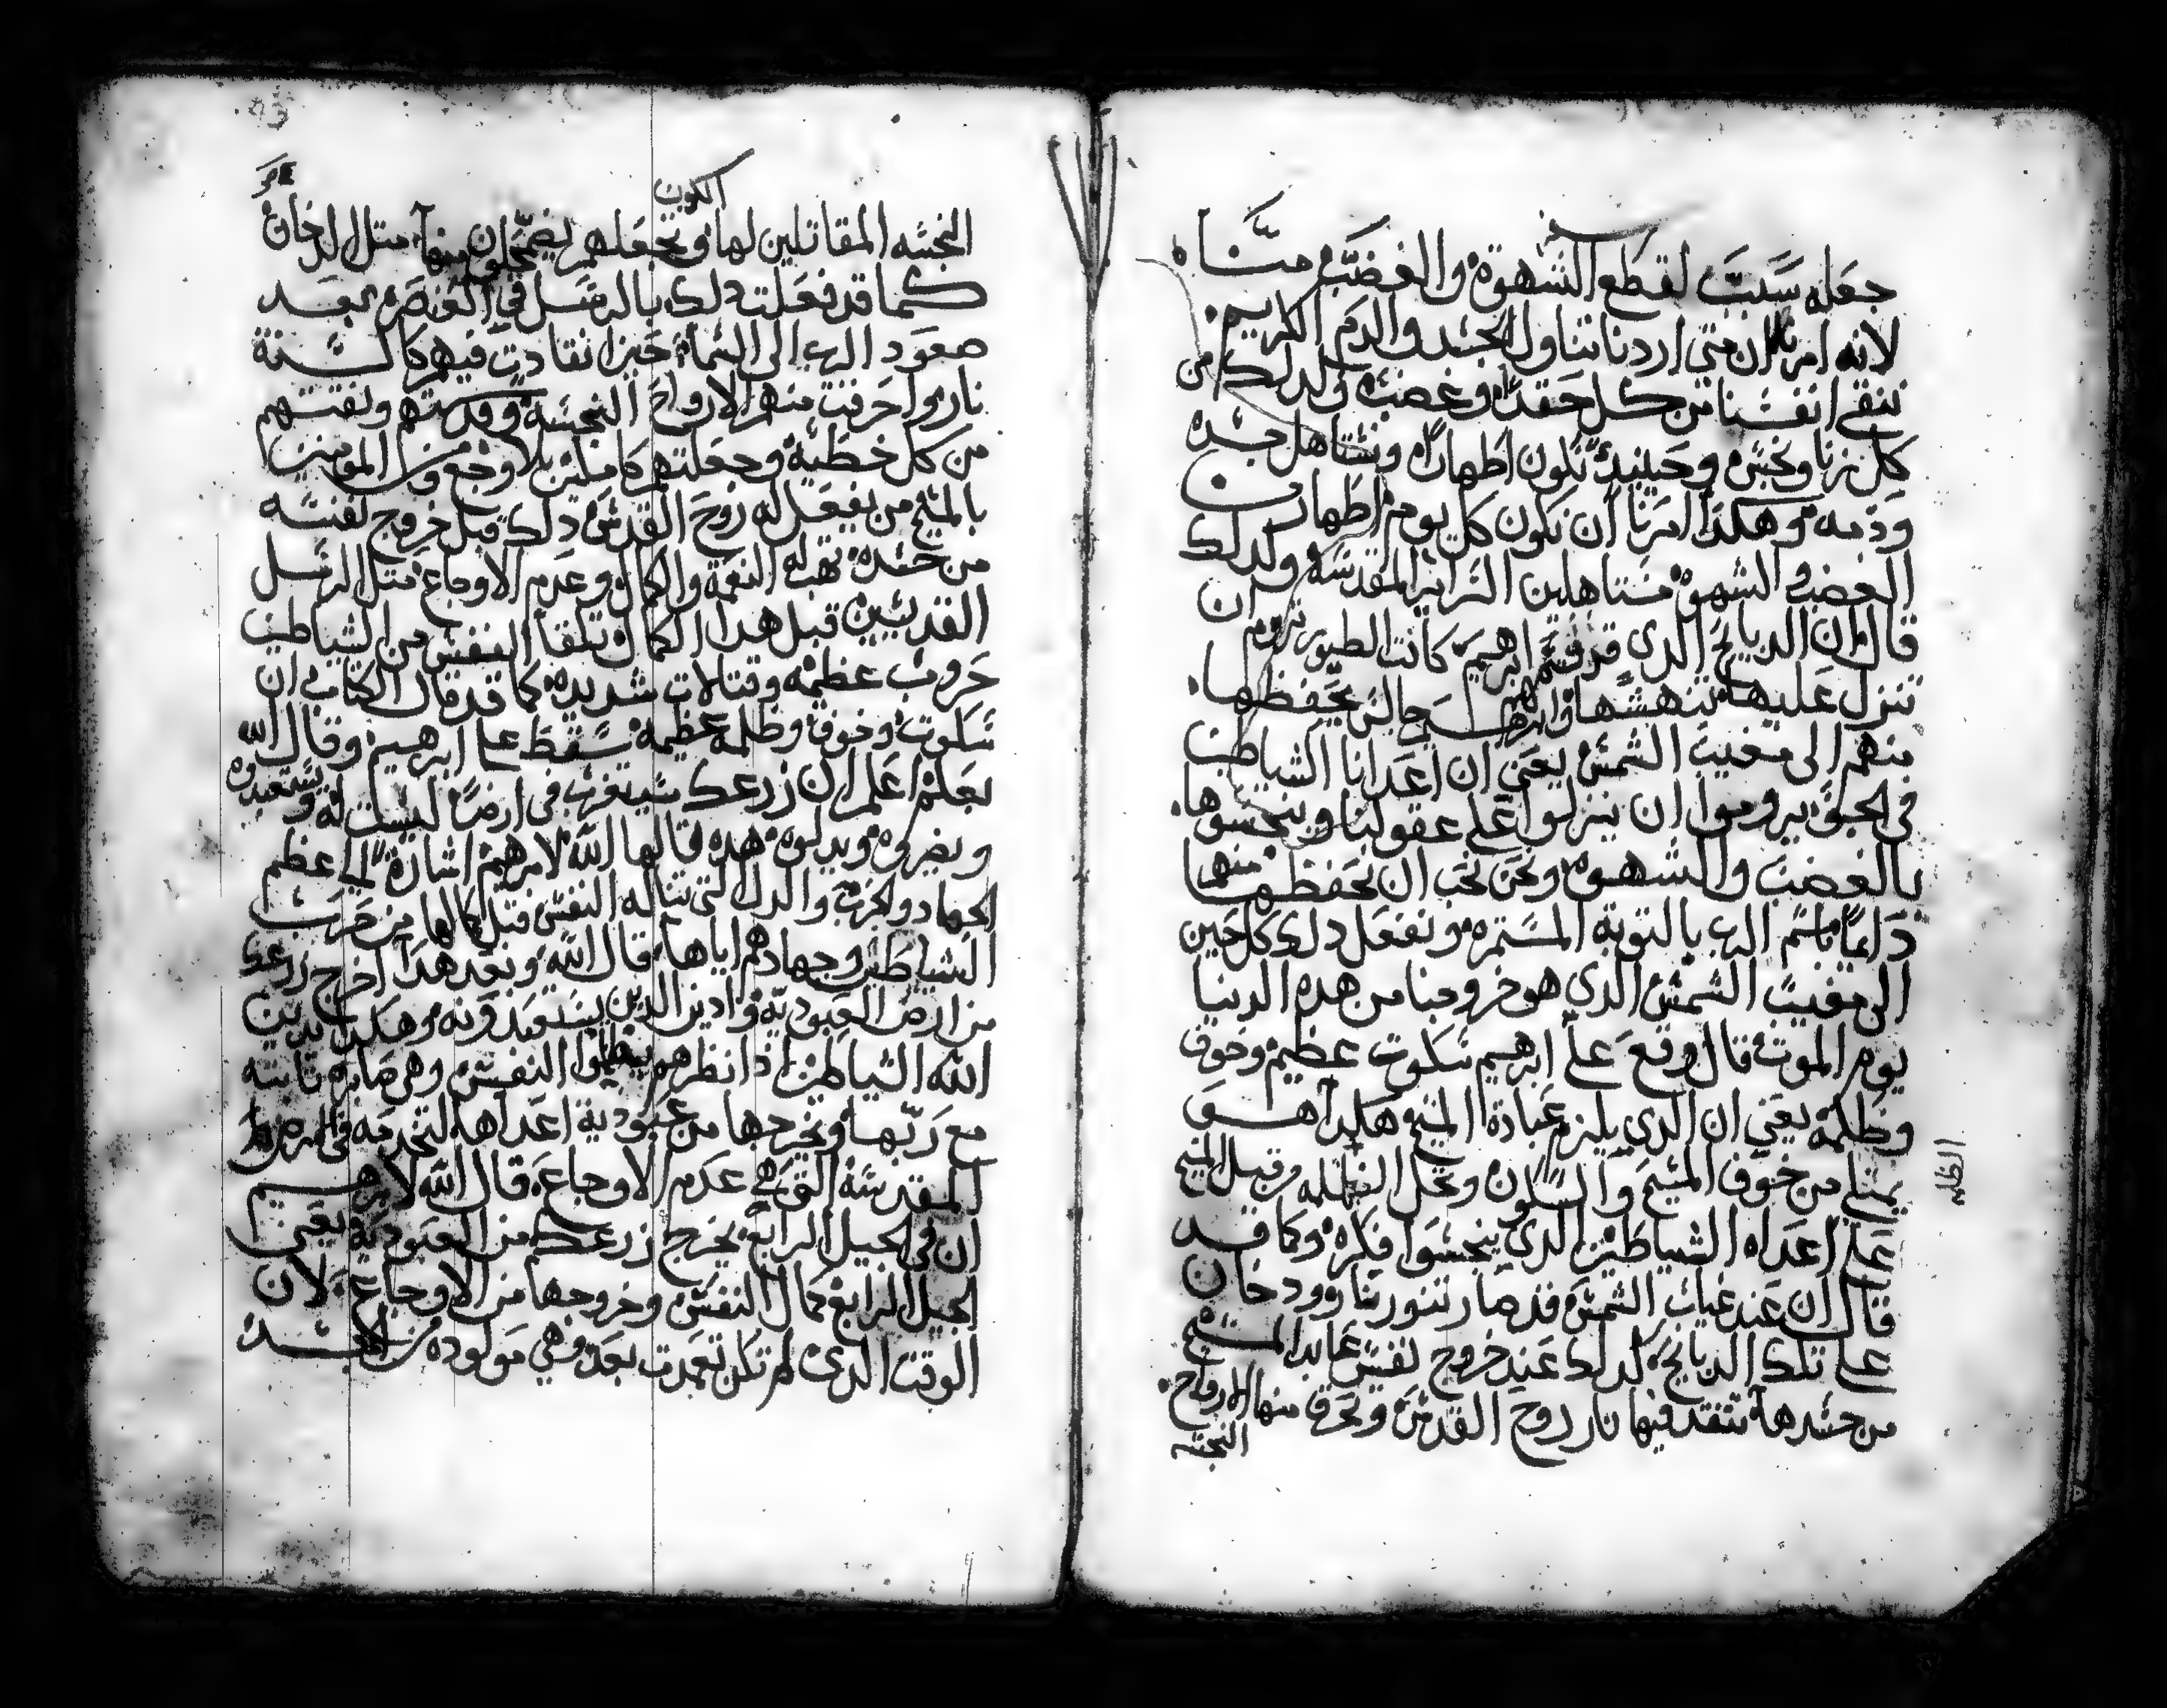 جعله سبب لقطع الشهوة والغضب منا
لانه امرنا ان متى اردنا نتناول الجسد والدم الكريم
ننقي انفسنا من كل حقد وغضب ولدلك من
كل زنا ونجس وحينيد نكون اطهارا ونستاهل جسده
ودمه وهكدا امرنا ان نكون كل يوم اطهار من
الغضب والشهوة مستاهلين السراير المقدسة ولدلك
قال ان الدبايح الدي قدمهم ابرهيم كانت الطيور تروم ان
تنزل عليها تنهشها وابرهيم جالس يحفظها
منهم الى مغيب الشمس يعني ان اعدانا الشياطين
في الجو يروموا ان ينزلوا على عقولنا وينجسوها
بالغضب والشهوة ونحن نحب ان نحفظها منهم
دايما باسم الرب بالتوبة المستمرة ونفعل دلك كل حين
الى مغيب الشمس الدي هو خروجنا من هده الدنيا
يوم الموت قال وقع على ابرهيم سكوت عظيم وخوف
وظلمة يعني ان الدي يلزم عبادة المسيح هكدا هو
يمتلي من خوف المسيح والسكون وتحل الظلمه من قبل المسيح
الظلمه
على اعداه الشياطين الدي ينجسوا فكره وكما قد
قال ان عند غياب الشمس قد صار تنور نار ودخان
على تلك الدبايح كدلك عند خروج نفس عابد المسيح
من جسدها تتقد فيها نار روح القدس وتحرق منها الارواح
النجسه
الكون
النجسه المقاتلين لها وتجعلهم يضمحلون منها متل الدخان
كما قد فعلت دلك بالرسل في العنصرة بعد
صعود الرب الى السماء حين انقادت فيهم كالسنة
نار واحرقت منهم الارواح النجسة وقدستهم ونقتهم
من كل خطية وجعلتهم كاملين بلا وجع ومن المومنين
بالمسيح من يفعل له روح القدس دلك قبل خروج نفسه
من جسده تهب له النعمة والكمال وعدم الاوجاع متل الرسل
القديسين قبل هدا الكمال وتلقا النفس من الشياطين
حروب عظيمه وقتالات شديده كما قد قال الكتاب ان
سكوت وخوف وظلمة عظيمة سقط على ابرهيم وقال الله
بعلم اعلم ان زرعك سيتغرب في ارض ليست له ويستعبدوه
ويضروه ويدلوه هده قالها الله لابرهيم اشارة الى عظم
الجهاد والحزن والدل التي تناله النفس قبل كمالها من حرب
الشياطين وجهادهم اياها قال الله وبعد هدا اخرج زرعك
من ارض العبودية وادين الدين يستعبدونه وهكدا يدين
الله الشياطين ادا نظرهم يظلموا النفس وهي صابره تابته
مع ربها ويخرجها من عبودية اعداها لتخدمه في الارض
المقدسة التي هي عدم الاوجاع قال الله لابرهيم
ان في الجيل الرابع يخرج زرعك من العبودية يعني
الجيل الرابع كمال النفس وخروجها من الاوجاع لان
الوقت الدي لم تكن تعمدت بعد وهي مولوده من الجسد